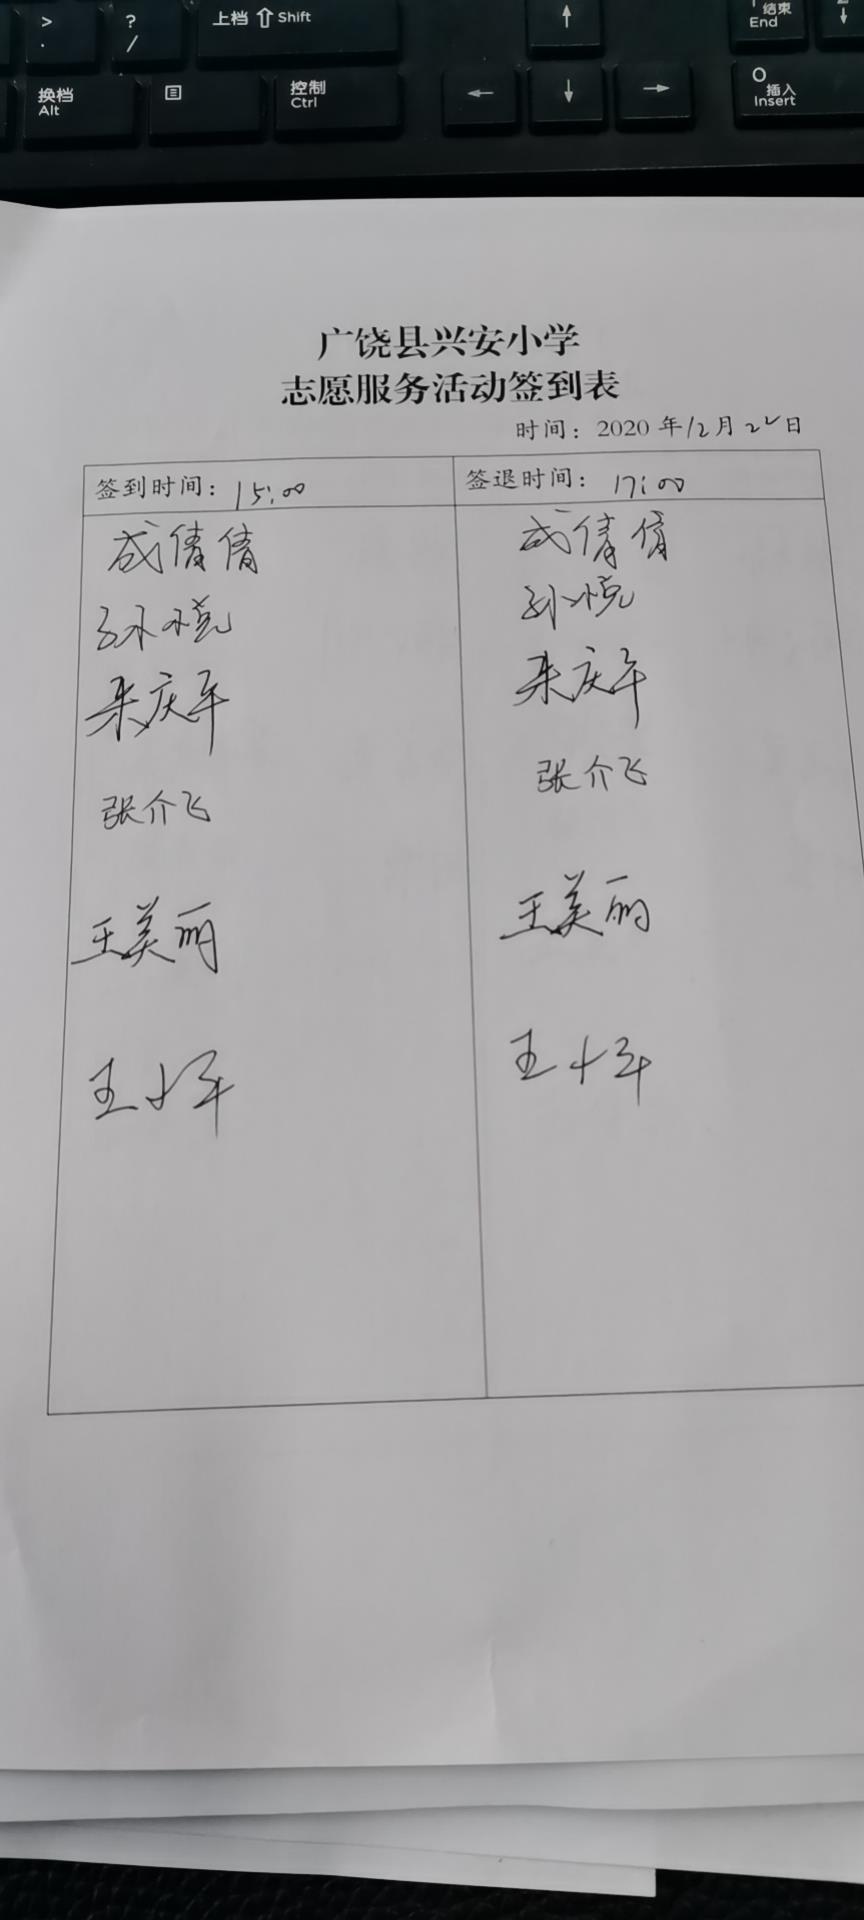 >
.
?
/
上档 ⇧ Shift
↑
结束
End
↓
换档
Alt
控制
Ctrl
←
↓
→
0
插入
Insert
广饶县兴安小学
志愿服务活动签到表
时间：2020 年12月22日
签到时间：15:00
签退时间：17:00
成倩倩
成倩倩
孙悦
孙悦
来庆军
来庆军
张介飞
张介飞
王美丽
王美丽
王
王